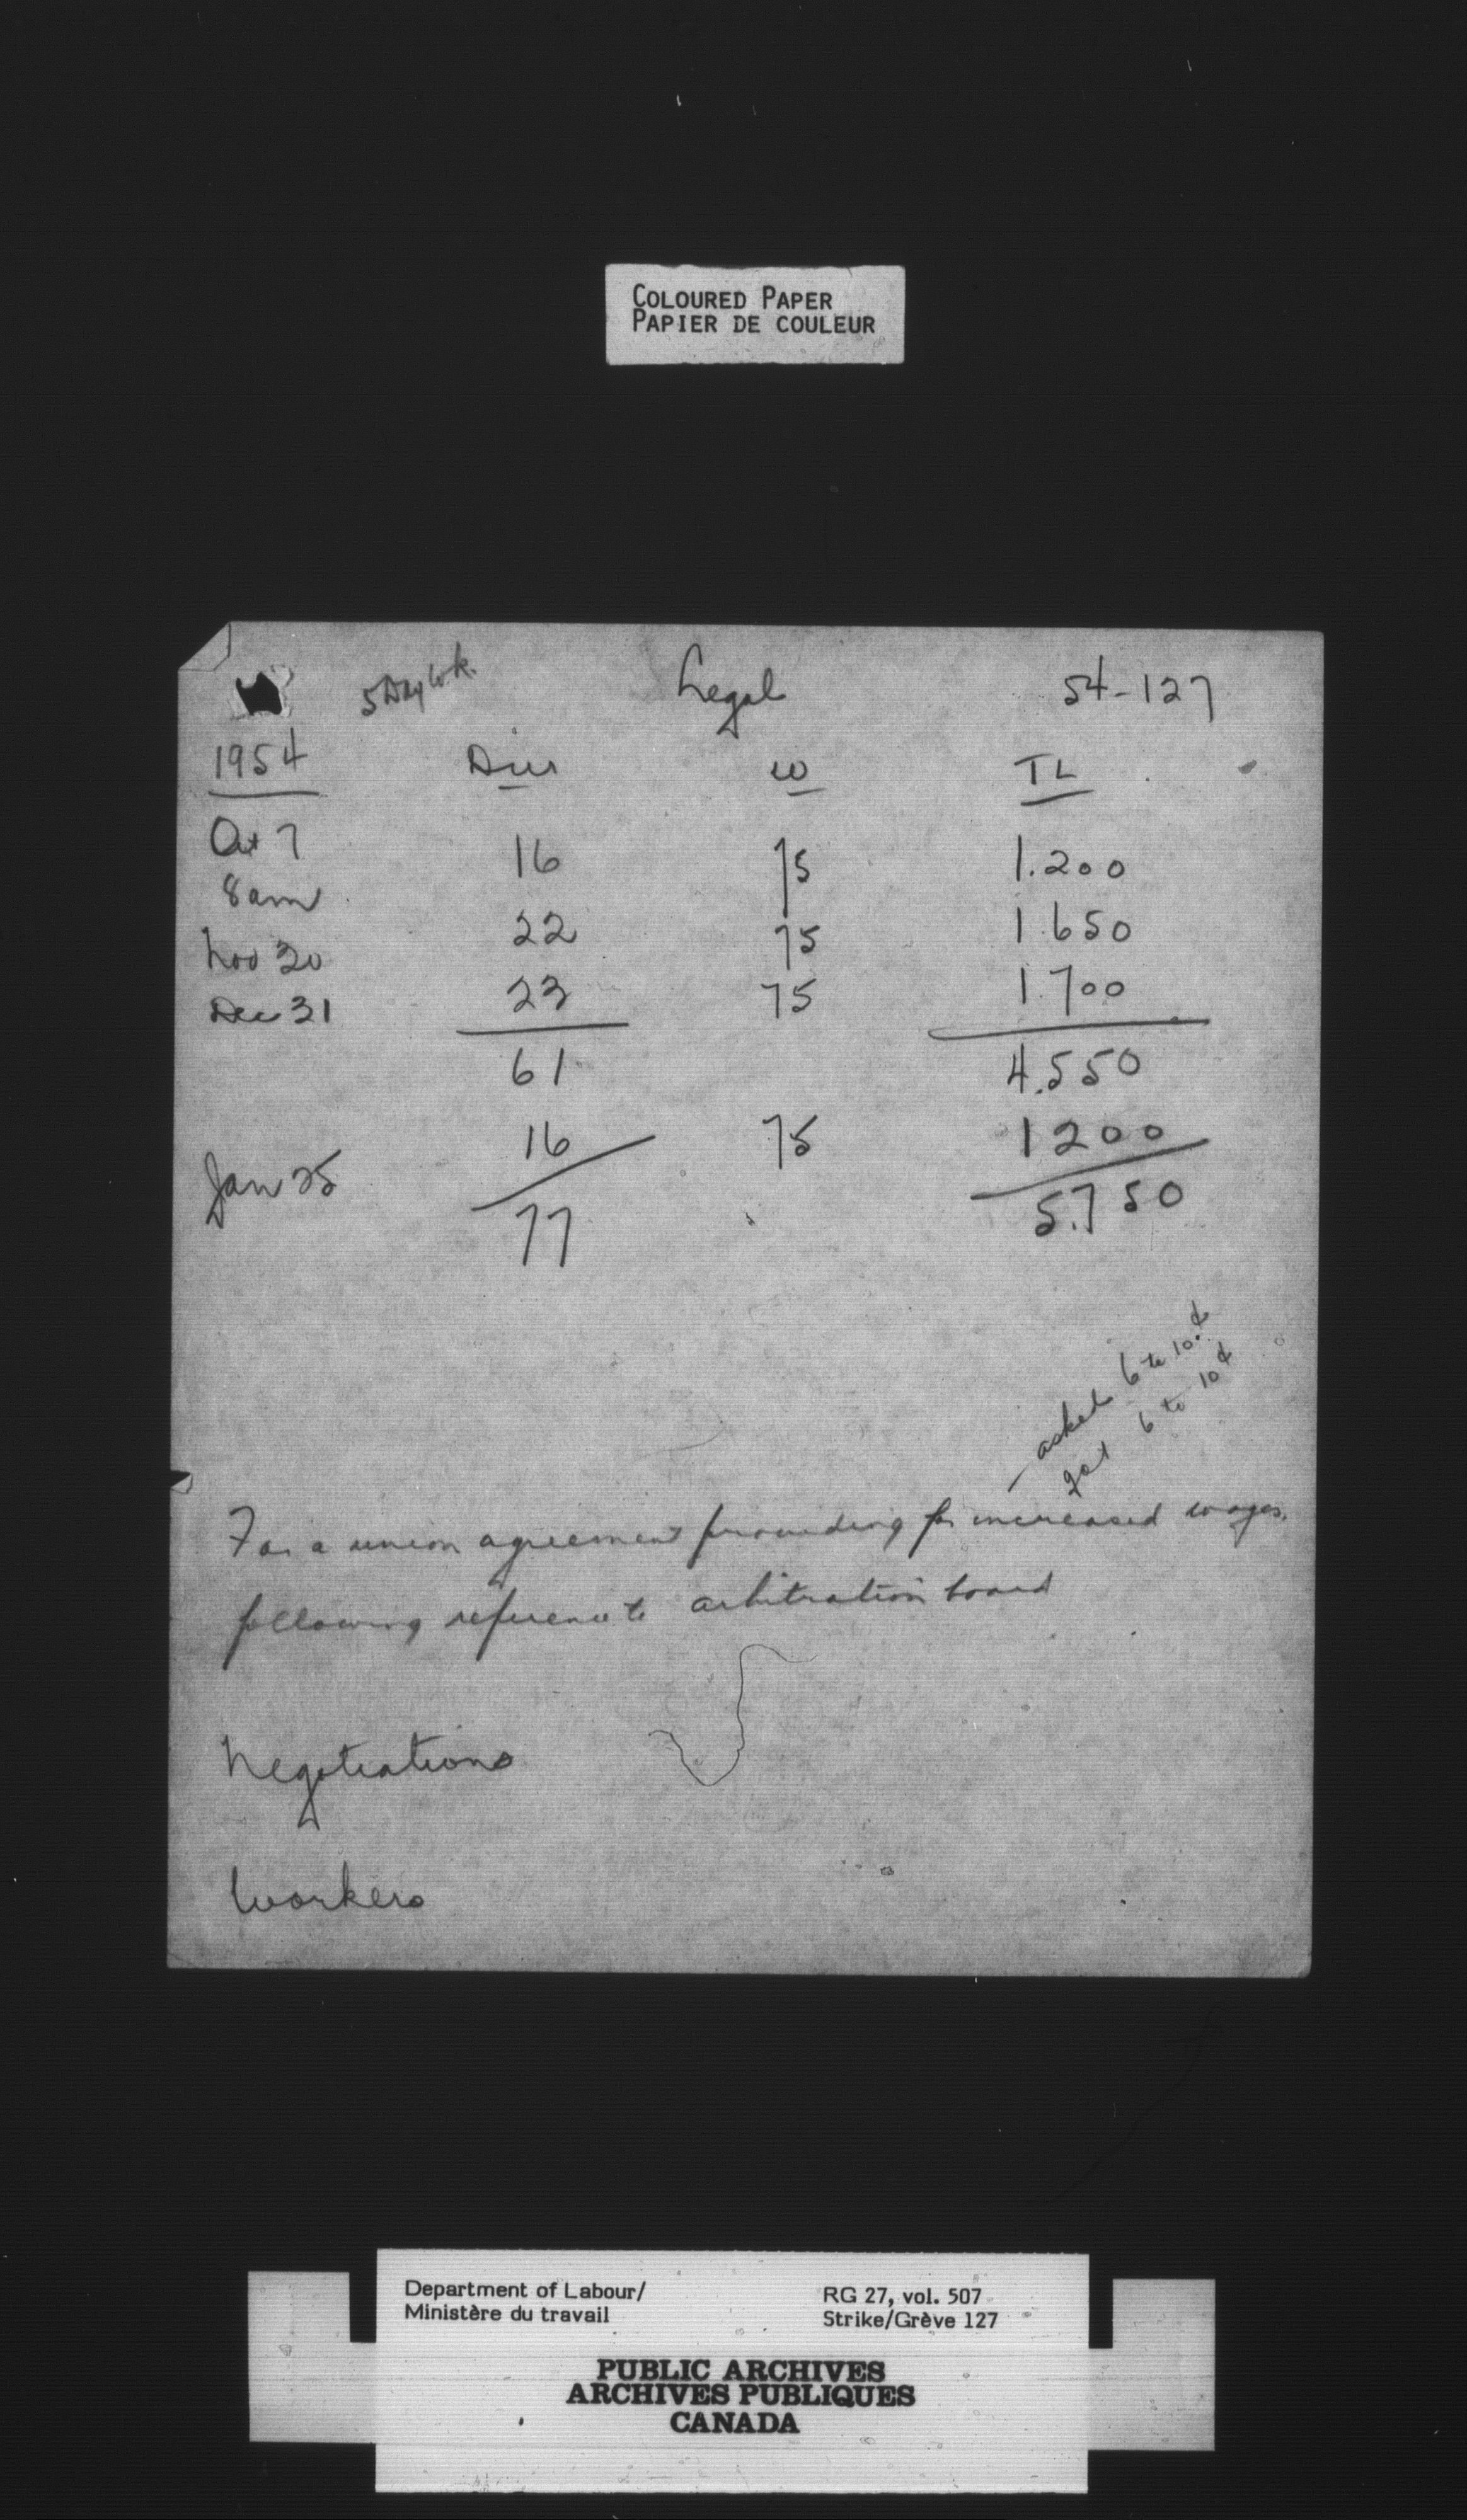 COLOURED PAPER
PAPIER DE COULEUR
5 Day Wk. Legal 54-127
1954 Dur W TL
Oct 7 16 75 1.200
8 am
Nov 30 22 75 1.650
Dec 31 23 75 1.700
61 4.550
Jan 25 16 75 1200
77 5.750
— asked 6 to 10¢
got 6 to 10¢
For a union agreement providing for increased wages,
following reference to arbitration board
Negotiations
Workers
Department of Labour/ RG 27, vol. 507
Ministère du travail Strike/Grève 127
PUBLIC ARCHIVES
ARCHIVES PUBLIQUES
CANADA